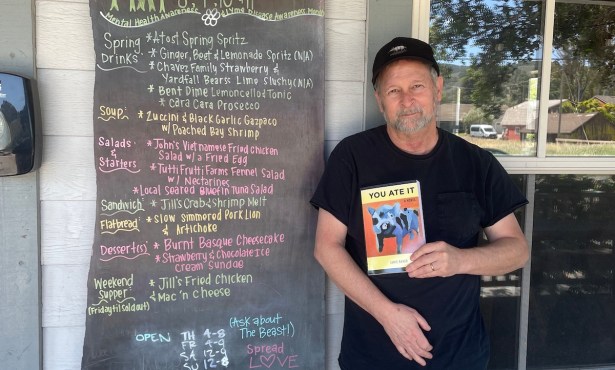 Mental Health Awareness & Lyme Disease Awareness Month
Spring Drinks
* Atost Spring Spritz
* Ginger, Beet & Lemonade Spritz (N/A)
* Chavez Family Strawberry & Yardfall Bears Lime Slushy (N/A)
* Bent Dime Lemoncelled Tonic
* Cara Cara Prosecco
Soup
* Zuccini & Black Garlic Gazpaco
w/ Poached Bay Shrimp
Salads & Starters
* John's Vietnamese Fried Chicken
Salad w/ a Fried Egg
* Tutti Frutti Farms Fennel Salad
w/ Nectarines
* Local Seared Bluefin Tuna Salad
Sandwich
* Jill's Crab & Shrimp Melt
Flatbread
* Slow Simmered Pork Lion
& Artichoke
Dessert(s)
* Burnt Basque Cheesecake
* Strawberry & Chocolate Ice
Cream Sundae
Weekend Supper
(Friday til Sold out)
* Jill's Fried Chicken
& Mac 'n Cheese
OPEN
TH 4-8
FR 4-9
SA 12-9
SU 12-8
(Ask about
The Beast!)
Spread
LOVE
YOU ATE IT